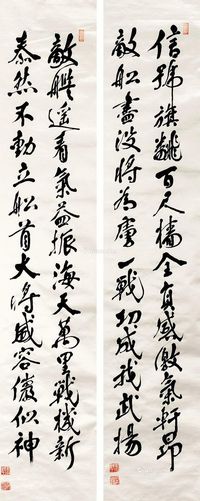 信號旗飜百尺檣全員感激氣軒昂
敵船盡沒將為虜一戰功成我武揚
敵艦遙看氣益振海天萬里戰機新
泰然不動立船首大將威容儼似神